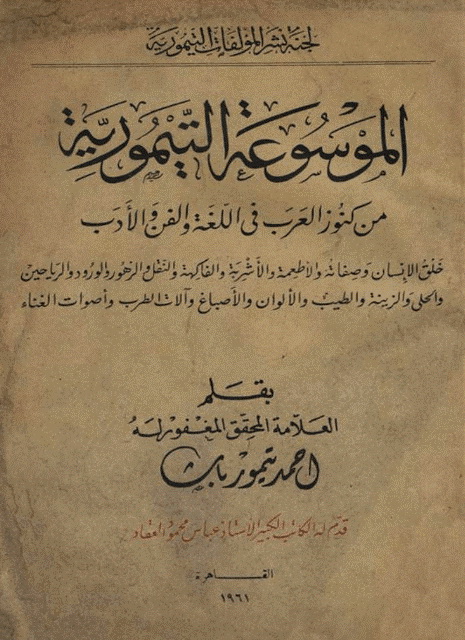 لجنة نشر المؤلفات التيمورية
الموسوعة التيمورية
من كنوز العرب في اللغة والفن والأدب
خلق الإنسان وصفاته والأطعمة والأشربة والفاكهة والنقل والزهور والورود والرياحين
والحلي والزينة والطيب والألوان والأصباغ وآلات الطرب وأصوات الغناء
بقلم
العلامة المحقق المغفور له
احمد تيمور باشا
قدم له الكاتب الكبير الأستاذ عباس محمود العقاد
القاهرة
١٩٦١